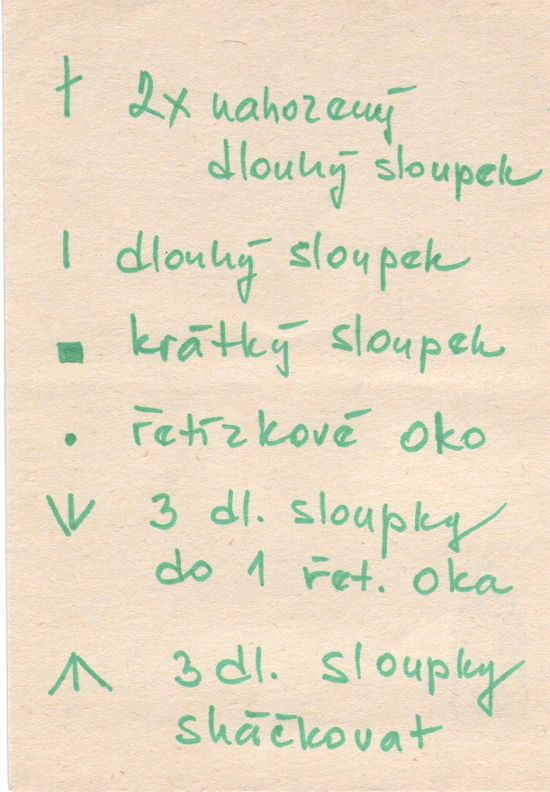 2x nahozený
dlouhý sloupek
dlouhý sloupek
krátký sloupek
řetízkové oko
3 dl. sloupky
do 1 řet. oka
3 dl. sloupky
sháčkovat